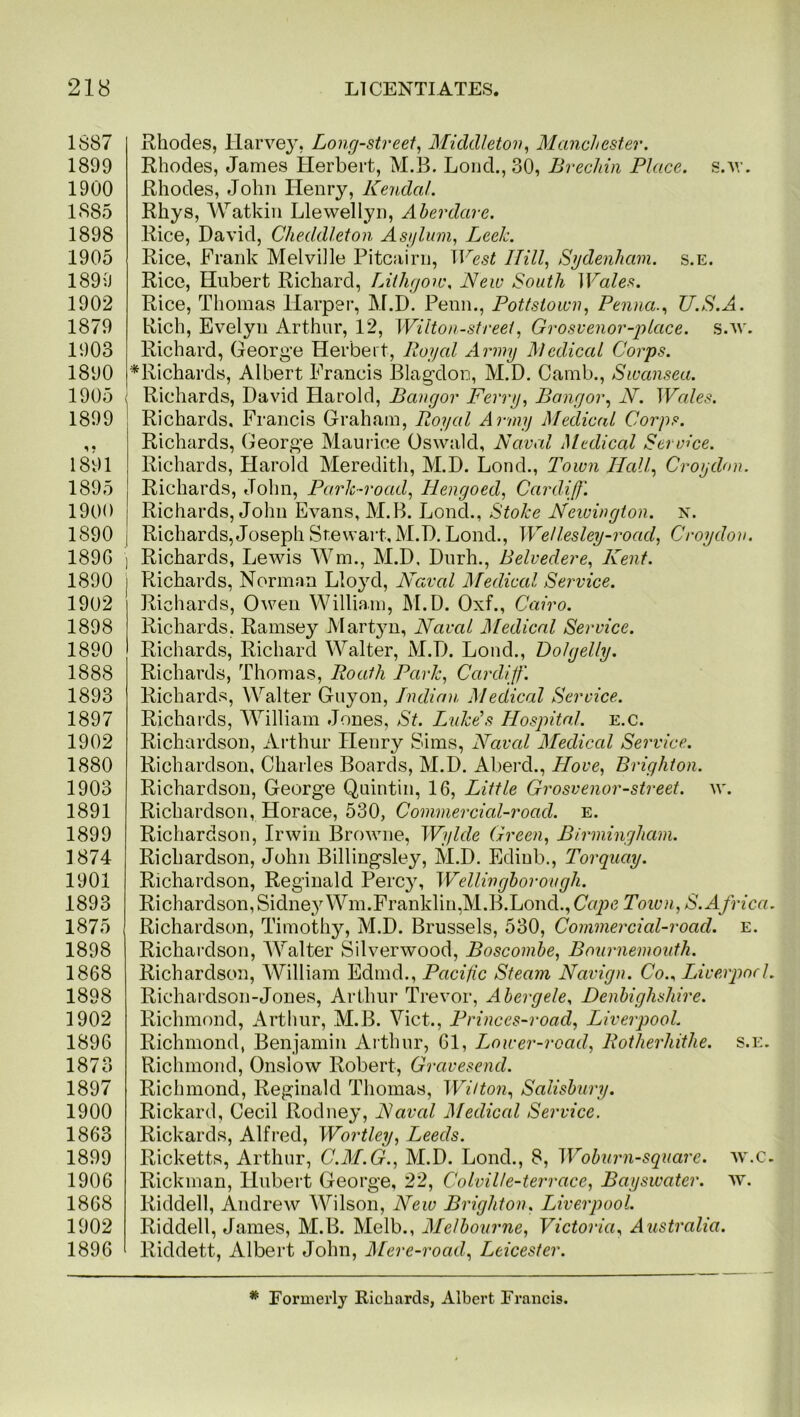 218 LICENTIATES.
1887 Rhodes, Harvey, Long-street, Middleton, Manchester.
1899 Rhodes, James Herbert, M.B. Lond., 30, Brechin Place. S.W.
1900 Rhodes, John Henry, Kendal.
1885 Rhys, Watkin Llewellyn, Aberdare.
1898 Rice, David, Cheddleton Asylum, Leek.
1905 Rice, Frank Melville Pitcairn, West Hill, Sydenham. S.E.
1899 Rice, Hubert Richard, Lithgow, New South Wales.
1902 Rice, Thomas Harper, M.D. Penn., Pottstown, Penna., U.S.A.
1879 Rich, Evelyn Arthur, 12, Wilton-street, Grosvenor-place. S.W.
1903 Richard, George Herbert, Royal Army Medical Corps.
1890 *Richards, Albert Francis Blagdon, M.D. Camb., Swansea.
1905 Richards, David Harold, Bangor Ferry, Bangor, N. Wales.
1899 Richards, Francis Graham, Royal Army Medical Corps.
,, Richards, George Maurice Oswald, Naval Medical Service.
1891 Richards, Harold Meredith, M.D. Lond., Town Hall, Croydon.
1895 Richards, John, Park-road, Hengoed, Cardiff.
1900 Richards, John Evans, M.B. Lond., Stoke Newington. N.
1890 Richards, Joseph Stewart, M.D. Lond., Wellesley-road, Croydon.
1896 Richards, Lewis Wm., M.D. Durh., Belvedere, Kent.
1890 Richards, Norman Lloyd, Naval Medical Service.
1902 Richards, Owen William, M.D. Oxf., Cairo.
1898 Richards, Ramsey Martyn, Naval Medical Service.
1890 Richards, Richard Walter, M.D. Lond., Dolgelly.
1888 Richards, Thomas, Roath Park, Cardiff.
1893 Richards, Walter Guyon, Indian Medical Service.
1897 Richards, William Jones, St. Luke's Hospital. E.C.
1902 Richardson, Arthur Henry Sims, Naval Medical Service.
1880 Richardson, Charles Boards, M.D. Aberd., Hove, Brighton.
1903 Richardson, George Quintin, 16, Little Grosvenor-street. W.
1891 Richardson, Horace, 530, Commercial-road. E.
1899 Richardson, Irwin Browne, Wylde Green, Birmingham.
1874 Richardson, John Billingsley, M.D. Edinb., Torquay.
1901 Richardson, Reginald Percy, Wellingborough.
1893 Richardson, Sidney Wm. Franklin, M.B. Lond., Cape Town, S.Africa.
1875 Richardson, Timothy, M.D. Brussels, 530, Commercial-road. E.
1898 Richardson, Walter Silverwood, Boscombe, Bournemouth.
1868 Richardson, William Edmd., Pacific Steam Navign. Co., Liverpool.
1898 Richardson-Jones, Arthur Trevor, Abergele, Denbighshire.
1902 Richmond, Arthur, M.B. Vict., Princes-road, Liverpool.
1896 Richmond, Benjamin Arthur, 61, Lower-road, Rotherhithe. S.E.
1873 Richmond, Onslow Robert, Gravesend.
1897 Richmond, Reginald Thomas, Wilton, Salisbury.
1900 Rickard, Cecil Rodney, Naval Medical Service.
1863 Rickards, Alfred, Wortley, Leeds.
1899 Ricketts, Arthur, C.M.G., M.D. Lond., 8, Woburn-square. W.C.
1906 Rickman, Hubert George, 22, Colville-terrace, Bayswater. W.
1868 Riddell, Andrew Wilson, New Brighton, Liverpool.
1902 Riddell, James, M.B. Melb., Melbourne, Victoria, Australia.
1896 Riddett, Albert John, Mere-road, Leicester.
* Formerly Richards, Albert Francis.